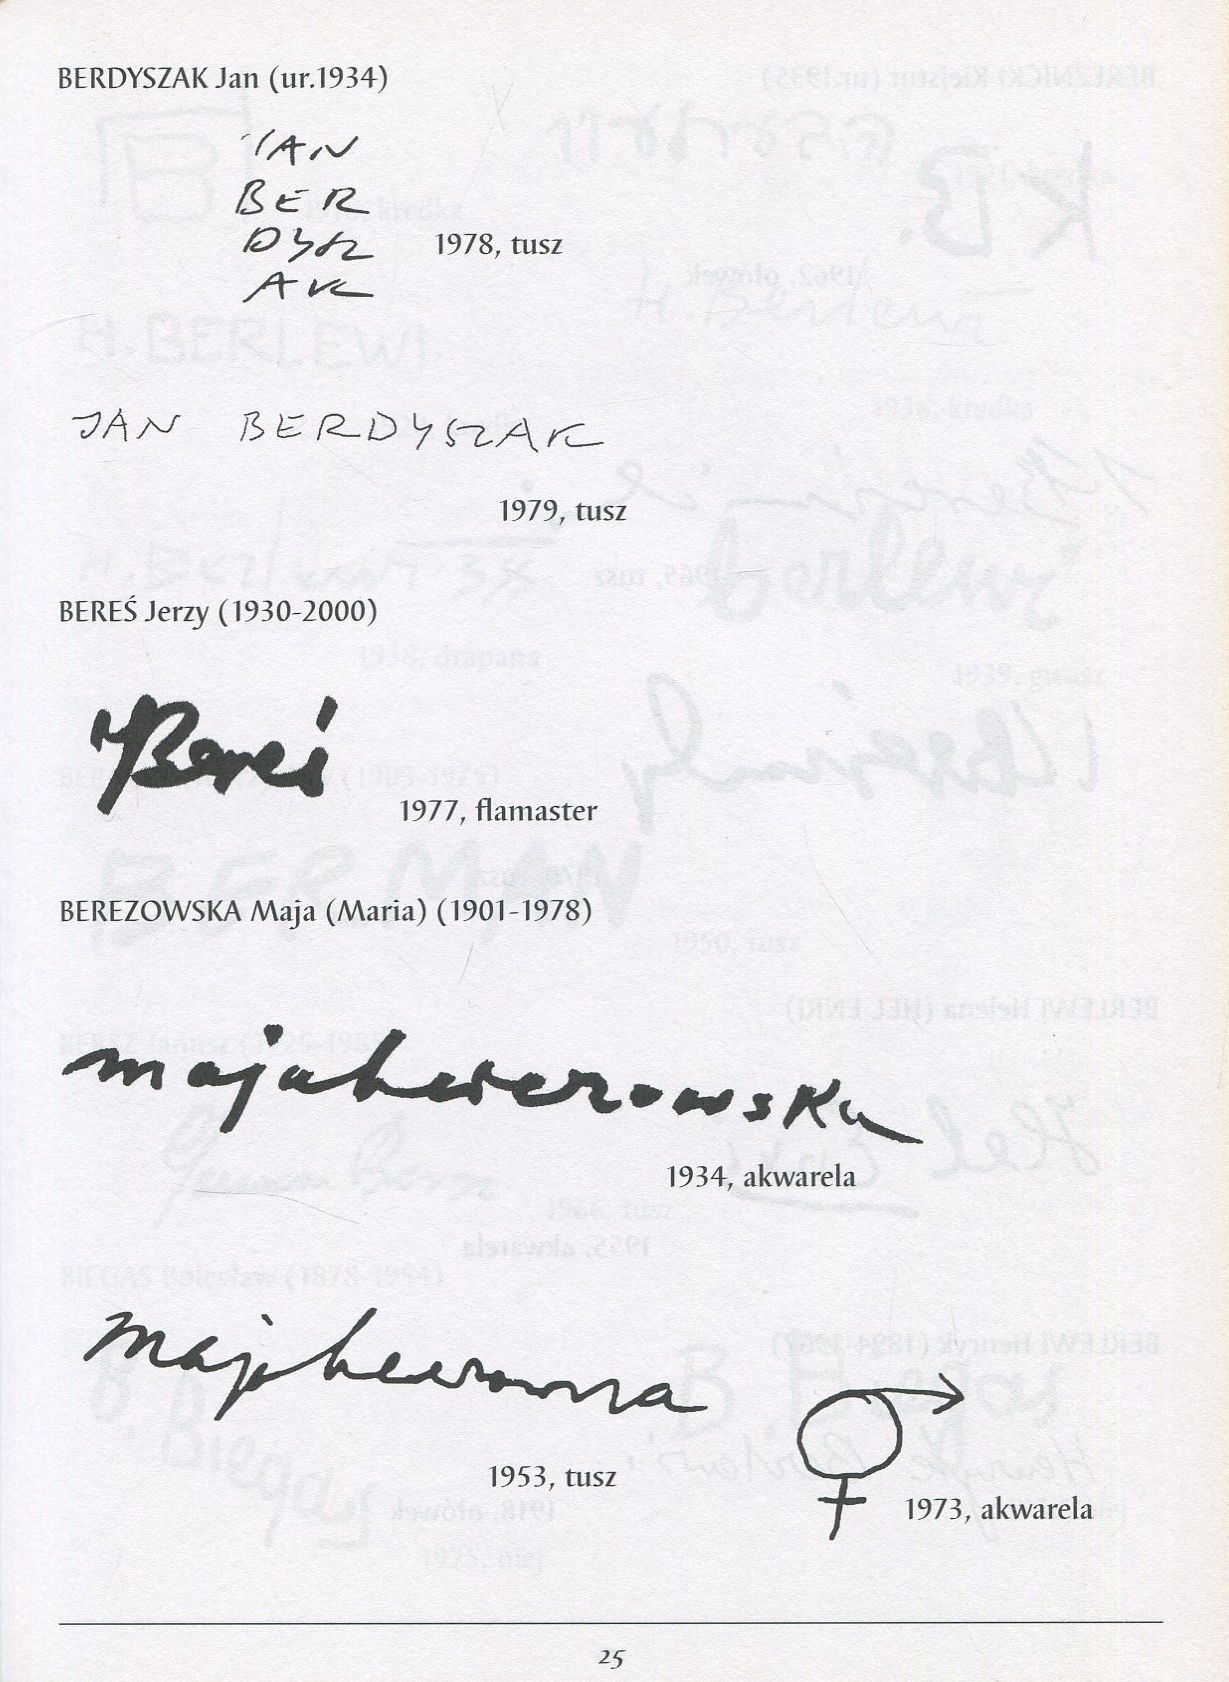 BERDYSZAK Jan (ur.1934)
JAN
BER
DYSZ
AK
1978, tusz
JAN BERDYSZAK
1979, tusz
BEREŚ Jerzy (1930-2000)
JBereś
1977, flamaster
BEREZOWSKA Maja (Maria) (1901-1978)
majaberezowska
1934, akwarela
1953, tusz
1973, akwarela
25